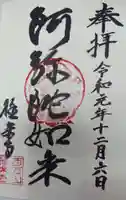 奉拝
令和元年十二月六日
阿弥陀如来